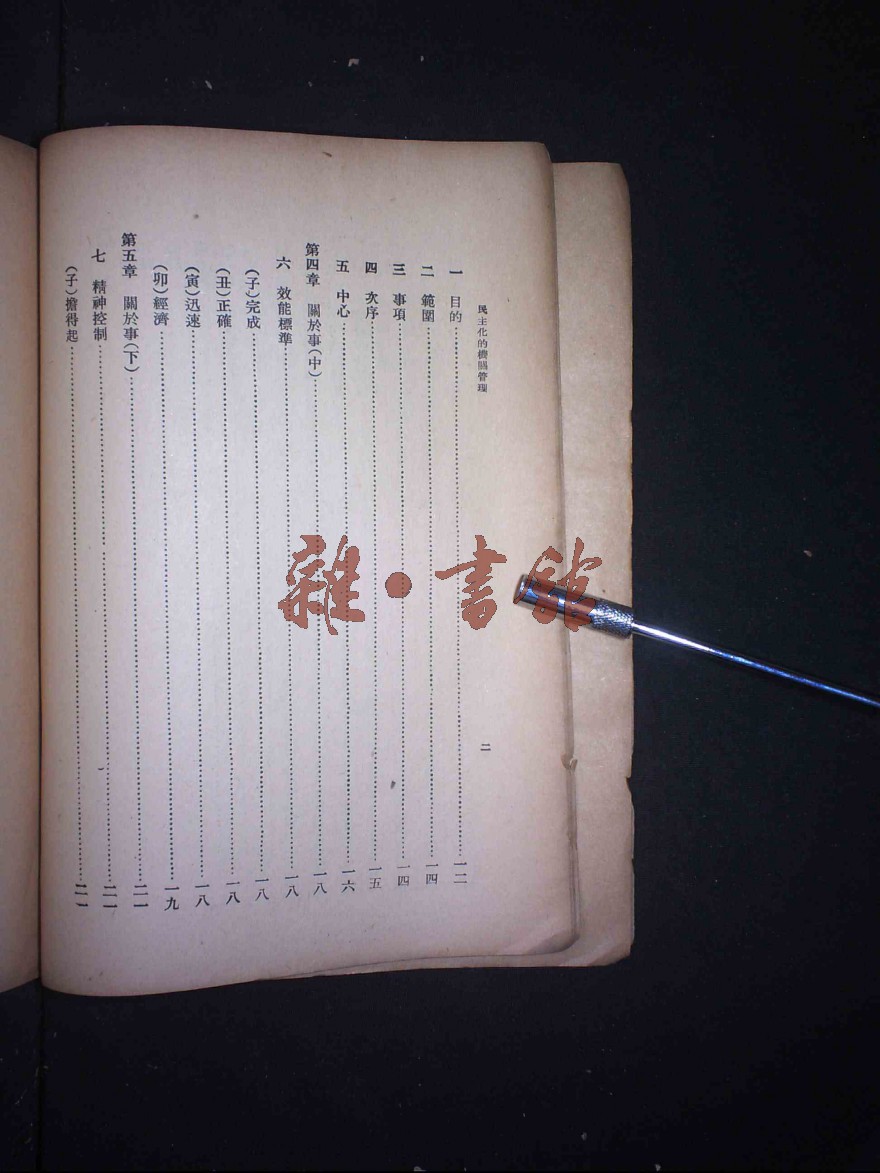 民主化的機關管理
二
一 目的……一二
二 範圍……一四
三 事項……一四
四 次序……一五
五 中心……一六
第四章 關於事(中)……一八
六 效能標準……一八
(子)完成……一八
(丑)正確……一八
(寅)迅速……一八
(卯)經濟……一九
第五章 關於事(下)……二一
七 精神控制……二一
(子)擔得起……二一
雜·書館